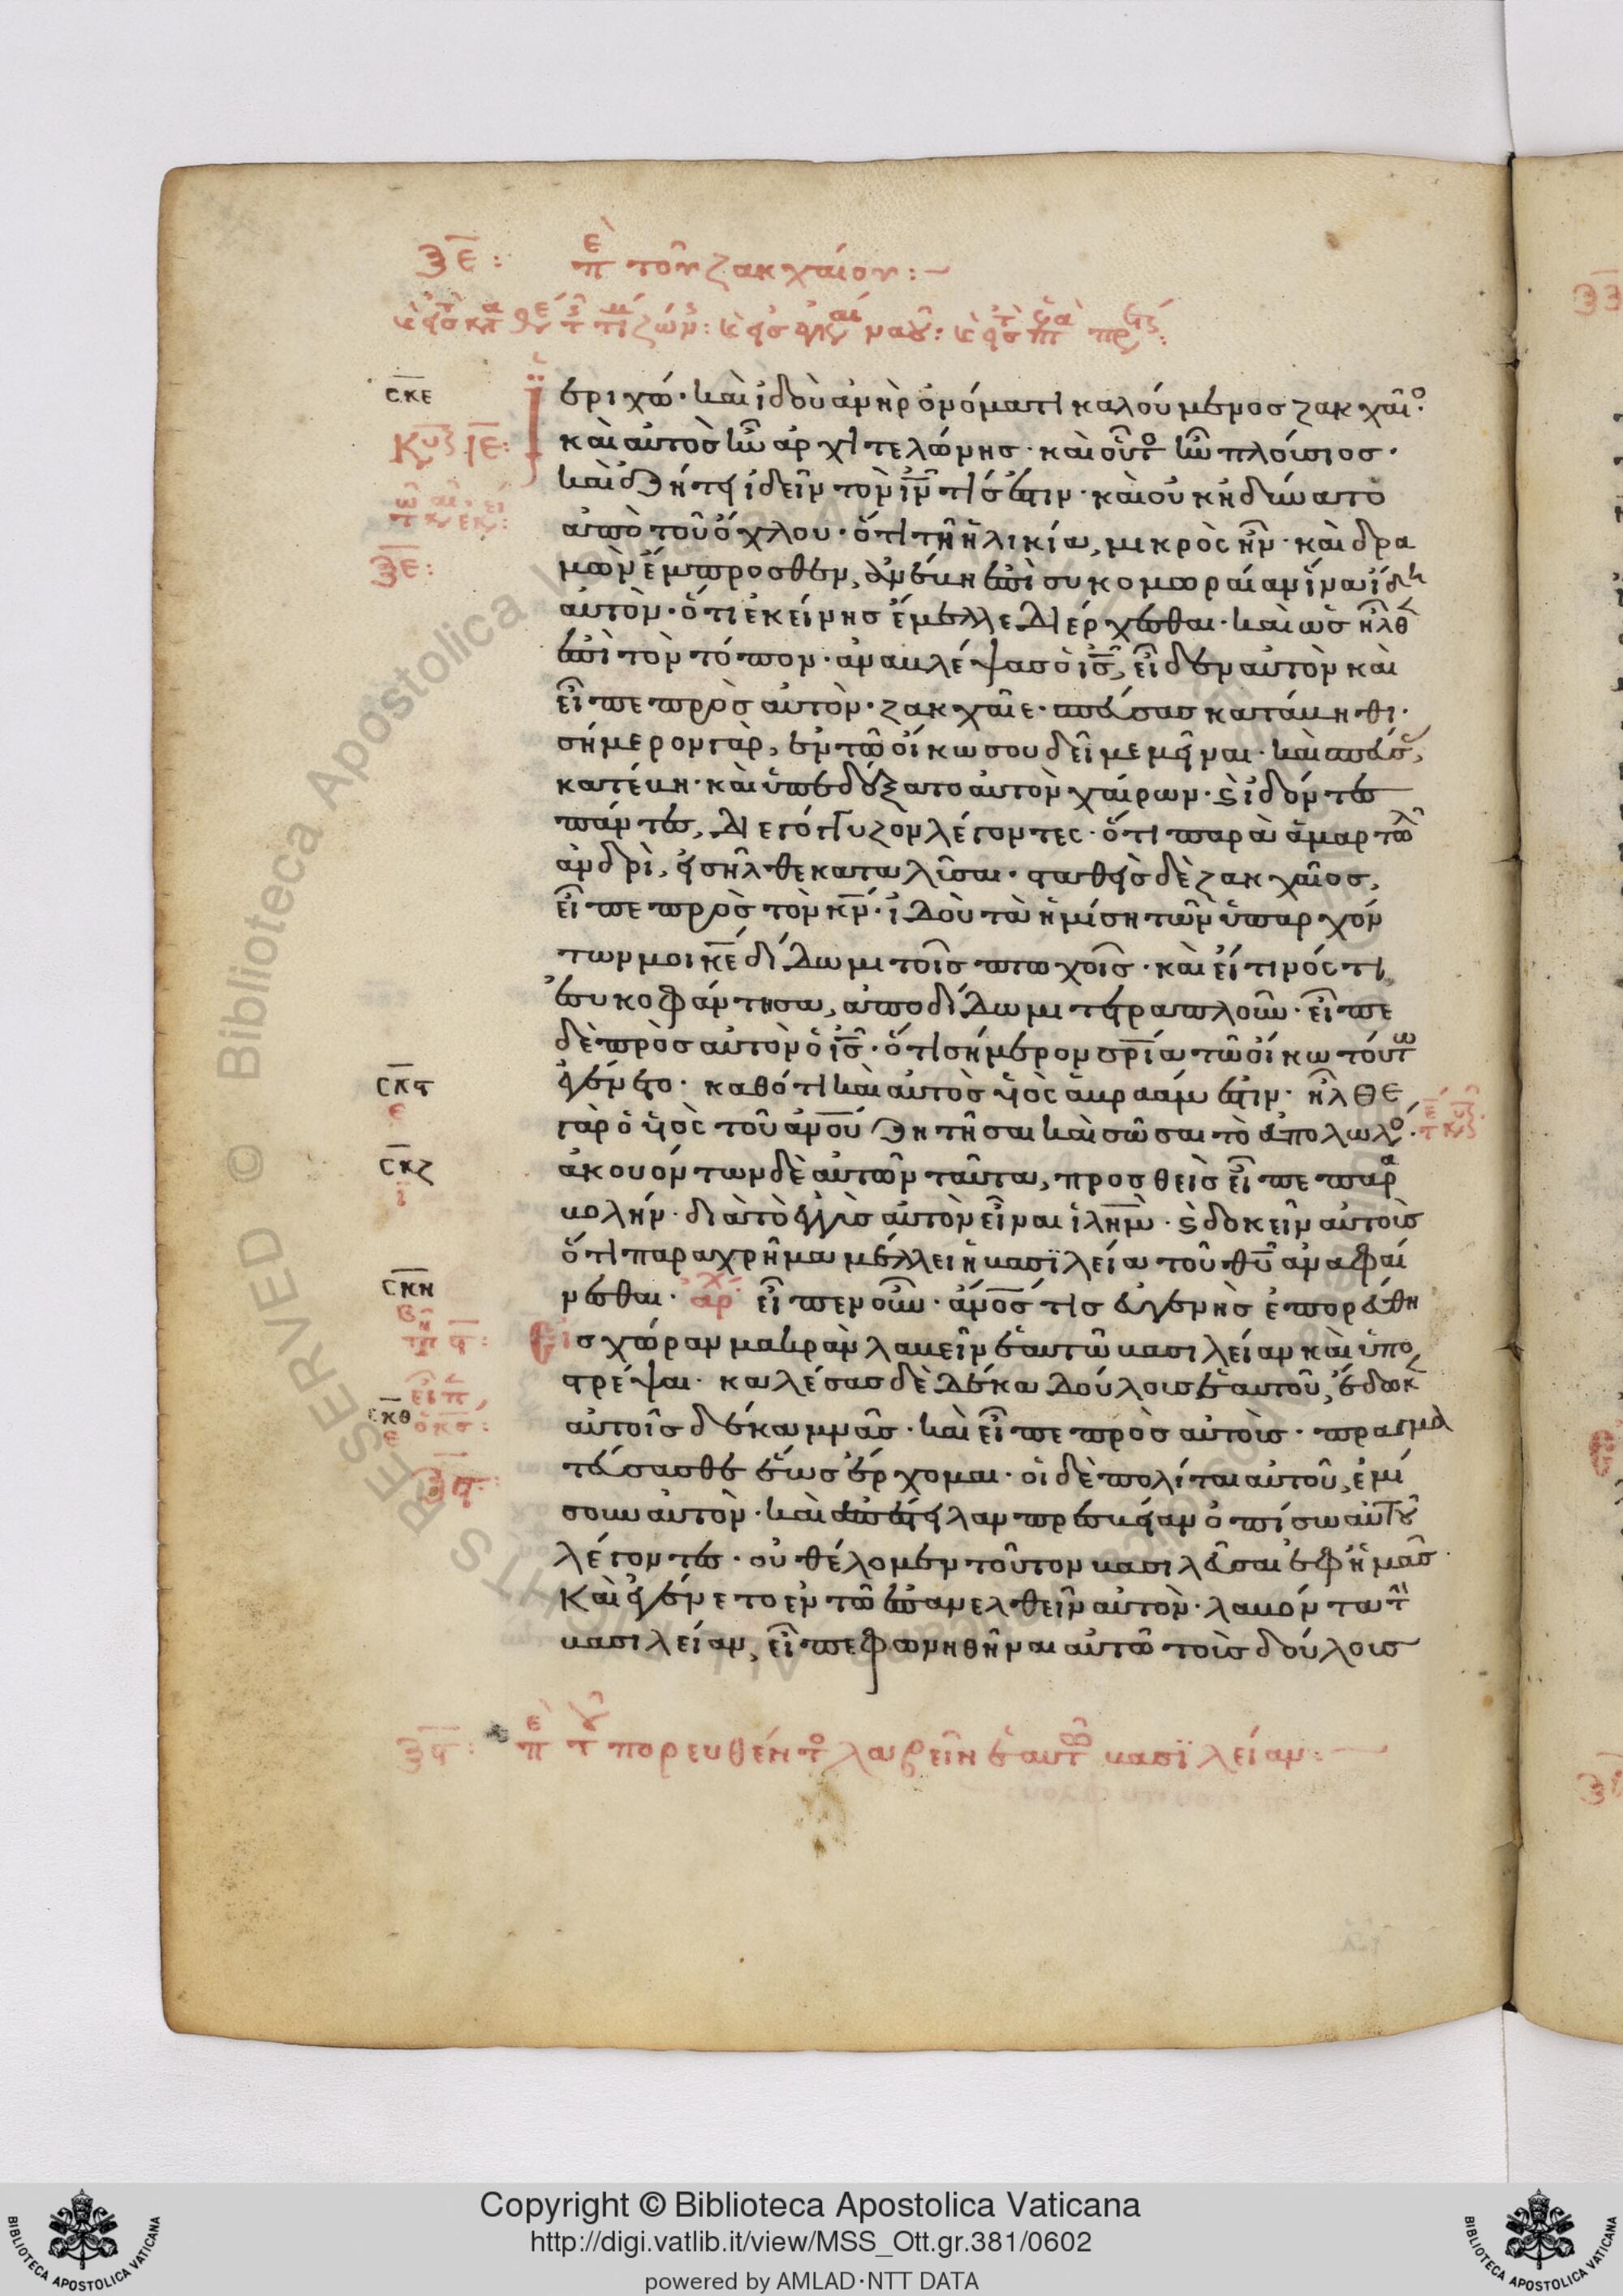 ξε: περὶ τοῦ ζακχαίου:
σκε
ἱεριχώ· καὶ ἰδοὺ ἀνὴρ ὀνόματι καλούμενος ζακχαῖο·
Κυ ιε:
καὶ αὐτὸς ἦν ἀρχιτελώνης· καὶ οὗτο ἦν πλούσιος·
καὶ ἐζήτει ἰδεῖν τὸν ιν τίς ἐστιν· καὶ οὐκ ἠδύνατο
ἀπὸ τοῦ ὄχλου· ὅτι τῆ ἡλικία, μικρὸς ἦν· καὶ δρα
ξε:
μὼν ἔμπροσθεν, ἀνέβη ἐπὶ συκομωραίαν ἵνα ἴδη
αὐτὸν· ὅτι ἐκείνης ἔμελλε διέρχεσθαι· καὶ ὡς ἦλθε
ἐπὶ τὸν τόπον· ἀναβλέψας ὁ ις, εἶδεν αὐτὸν καὶ
εἶπε πρὸς αὐτὸν· ζακχαῖε· σπεύσας κατάβηθι·
σήμερον γὰρ, ἐν τῶ οἴκω σου δεῖ με μεῖναι· καὶ σπεύσας,
κατέβη· καὶ ὑπεδέξατο αὐτὸν χαίρων· καὶ ἰδόντες
πάντες, διεγόγγυζον λέγοντες· ὅτι παρὰ ἁμαρτωλῶ
ἀνδρὶ, εἰσῆλθε καταλῦσαι· σταθεὶς δὲ ζακχαῖος,
εἶπε πρὸς τὸν κν· ἰδοὺ τὰ ἡμίση τῶν ὑπαρχόν
των μου κε δίδωμι τοῖς πτωχοῖς· καὶ εἴ τινός τι
ἐσυκοφάντησα, ἀποδίδωμι τετραπλοῦν· εἶπε
δὲ πρὸς αὐτὸν ὁ ις· ὅτι σήμερον σρία τῶ οἴκω τούτω
σκϛ
ε
ἐγένετο· καθότι καὶ αὐτὸς υἱὸς ἀβραάμ ἐστιν· ἦλθε
γὰρ ὁ υἱὸς τοῦ ανου ζητῆσαι καὶ σῶσαι τὸ ἀπολωλὸ·
σκζ
ι
ἀκουόντων δὲ αὐτῶν ταῦτα, προσθεὶς εἶπε παρα
βολήν· διὰ τὸ ἐγγὺς αὐτὸν εἶναι ιλημ· καὶ δοκεῖν αὐτοὺς
ὅτι παραχρῆμα μέλλει ἡ βασιλεία τοῦ θυ ἀναφαί
σκη
νεσθαι· ἀρχ εἶπεν οὖν· ανος τις εὐγενὴς ἐπορεύθη
εἰς χώραν μακρὰν λαβεῖν ἑαυτῶ βασιλείαν καὶ ὑπο
στρέψαι· καλέσας δὲ δέκα δούλους ἑαυτοῦ, ἔδωκεν
σκθ
ε
αὐτοῖς δέκα μνᾶς· καὶ εἶπε πρὸς αὐτοὺς· πραγμα
ξϛ
τεύσασθε ἕως ἔρχομαι· οἱ δὲ πολίται αὐτοῦ, ἐμί
σουν αὐτὸν· καὶ ἀπέστειλαν πρεσβείαν ὀπίσω αὐτοῦ
λέγοντες· οὐ θέλομεν τοῦτον βασιλεῦσαι ἐφ ἡμᾶς·
καὶ ἐγένετο ἐν τῶ ἐπανελθεῖν αὐτὸν· λαβόντα τὴν
βασιλείαν, εἶπε φωνηθῆναι αὐτῶ τοὺς δούλους
ξϛ: περὶ τοῦ πορευθέντο λαβεῖν ἑαυτῶ βασιλείαν:
Copyright © Biblioteca Apostolica Vaticana
http://digi.vatlib.it/view/MSS_Ott.gr.381/0602
powered by AMLAD·NTT DATA